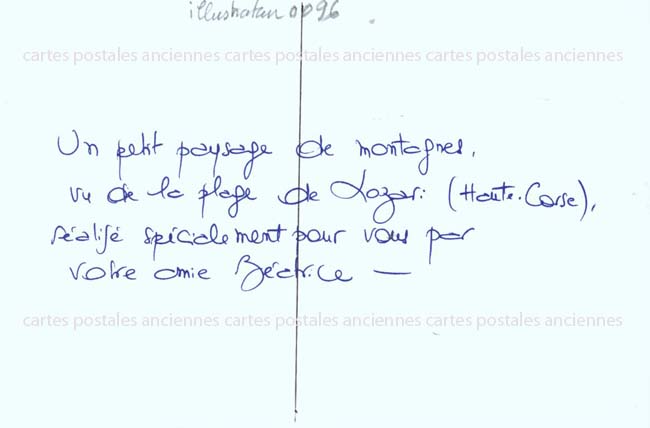 illustration op 96
cartes postales anciennes cartes postales anciennes cartes postales anciennes
Un petit paysage de montagnes,
vu de la plage de Lozari (Haute-Corse),
réalisé spécialement pour vous par
votre amie Béatrice —
cartes postales anciennes cartes postales anciennes cartes postales anciennes